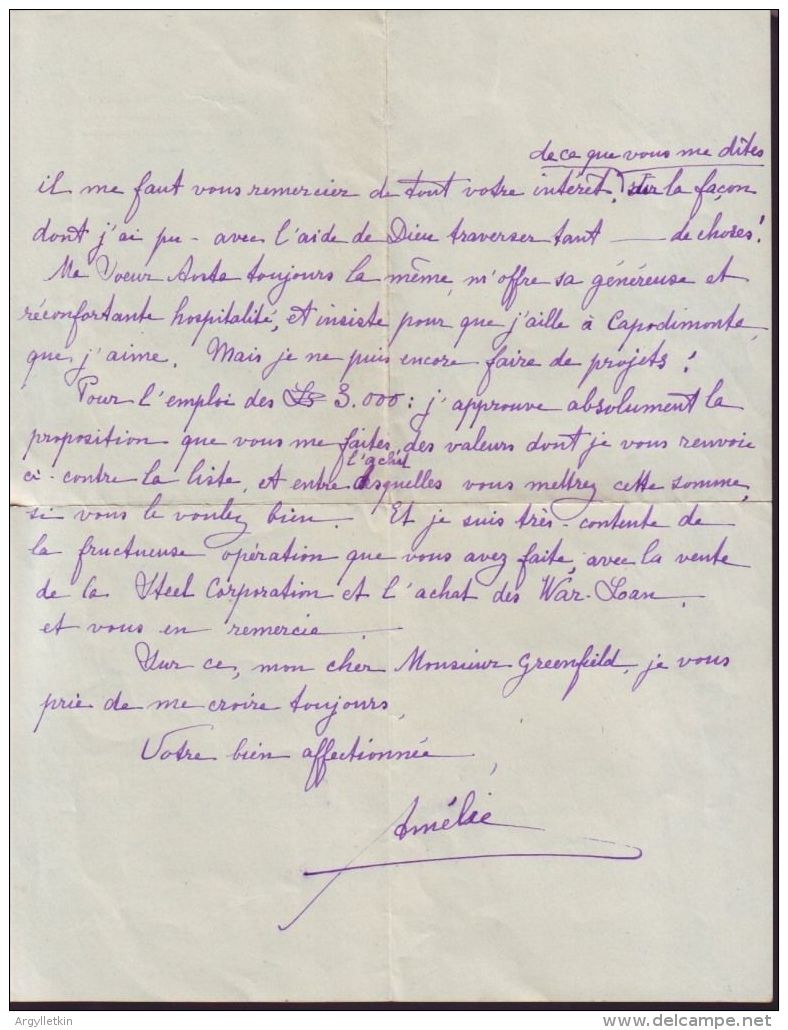 de ce que vous me dîtes
il me faut vous remercier de tout votre intérêt, sur la façon
dont j'ai pu - avec l'aide de Dieu traverser tant — de choses!
Ma Soeur Aoste toujours la même, m'offre sa généreuse et
réconfortante hospitalité, et insiste pour que j'aille à Capodimonte,
que j'aime. Mais je ne puis encore faire de projets!
Pour l'emploi des 3.000: j'approuve absolument la
proposition que vous me faites, des valeurs dont je vous renvoie
l'achat
ci-contre la liste, et entre lesquelles vous mettrez cette somme,
si vous le voulez bien. Et je suis très-contente de
la fructueuse opération que vous avez faite, avec la vente
de la Steel Corporation et l'achat des War-Loan,
et vous en remercie.
Sur ce, mon cher Monsieur Greenfield, je vous
prie de me croire toujours,
Votre bien affectionnée,
Amélie
Argylletkin
www.delcampe.net